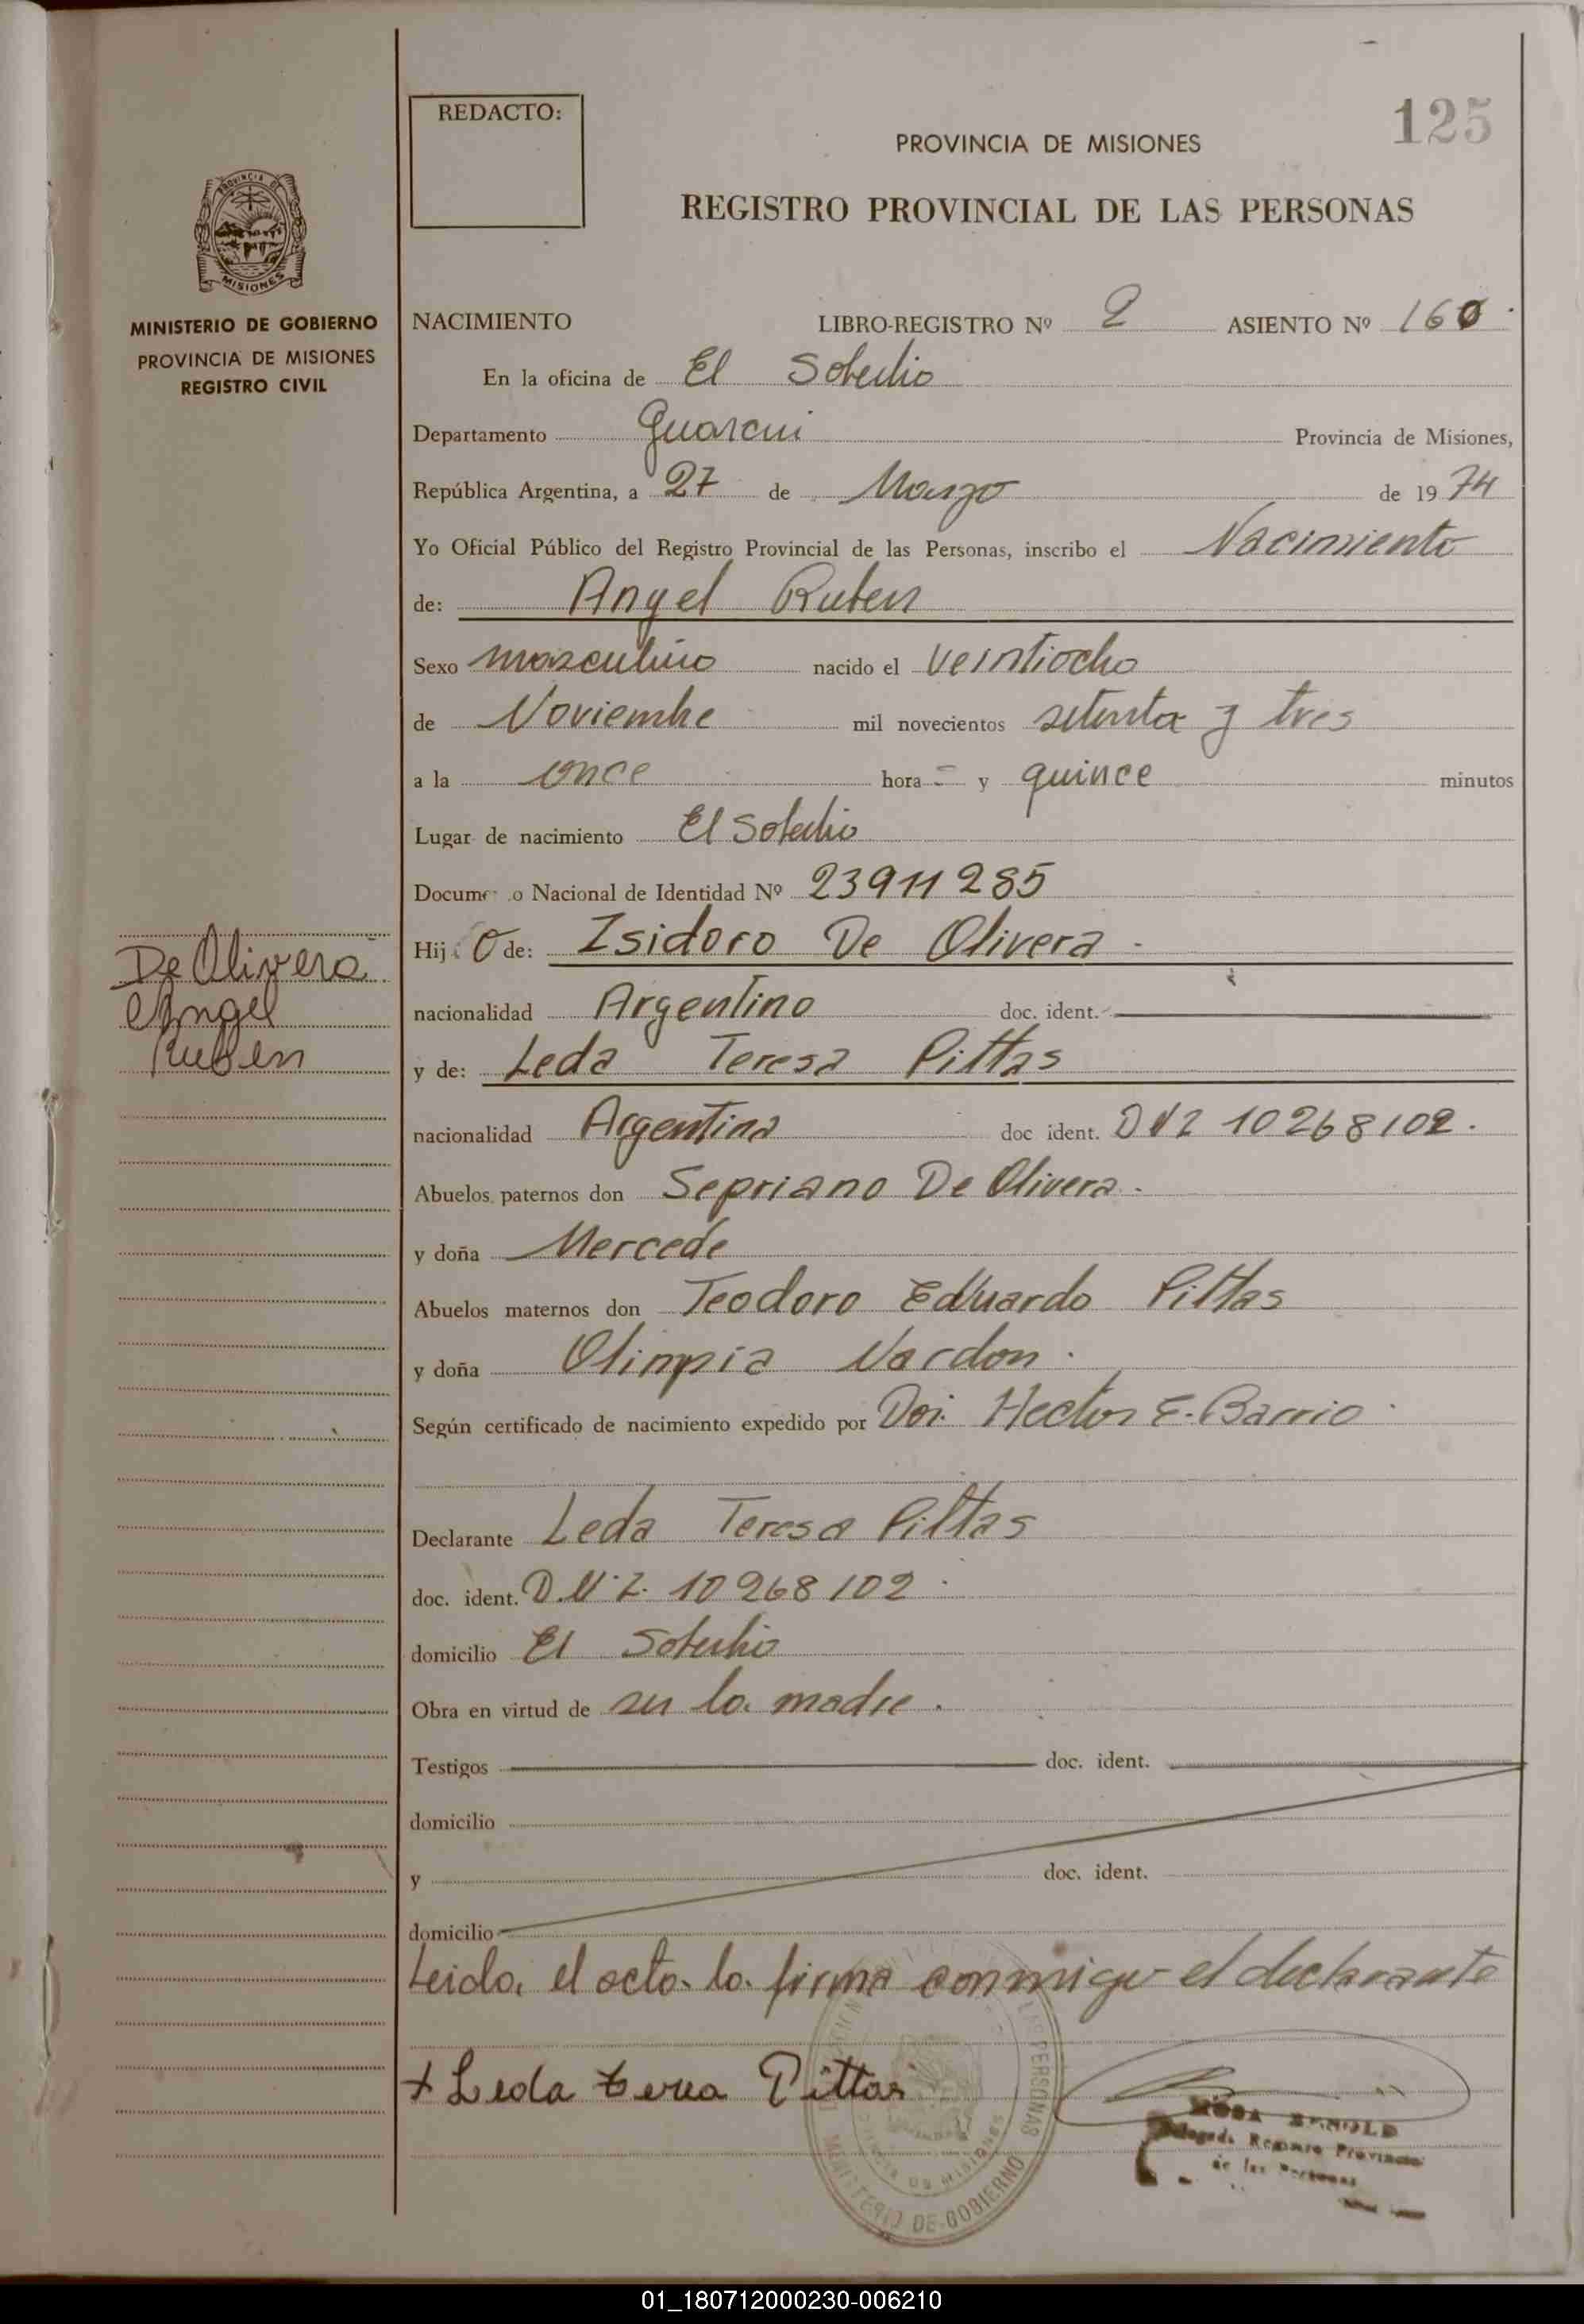 125
REDACTO:
PROVINCIA DE MISIONES
REGISTRO PROVINCIAL DE LAS PERSONAS
PROVINCIA DE
MISIONES
MINISTERIO DE GOBIERNO
PROVINCIA DE MISIONES
REGISTRO CIVIL
NACIMIENTO LIBRO-REGISTRO Nº 2 ASIENTO Nº 160
En la oficina de El Soberbio
Departamento Guarani Provincia de Misiones,
República Argentina, a 27 de Marzo de 1974
Yo Oficial Público del Registro Provincial de las Personas, inscribo el Nacimiento
de: Angel Ruben
Sexo masculino nacido el veintiocho
de Noviembre mil novecientos setenta y tres
a la once hora = y quince minutos
Lugar de nacimiento El Soberbio
Docum o Nacional de Identidad Nº 23911285
De Olivera
Angel
Ruben
Hij o de: Isidoro De Olivera -
nacionalidad Argentino doc. ident.
y de: Leda Teresa Pittas
nacionalidad Argentina doc ident. DNI 10268102.
Abuelos paternos don Sepriano De Olivera -
y doña Mercede
Abuelos maternos don Teodoro Eduardo Pittas
y doña Olimpia Nardon.
Según certificado de nacimiento expedido por Hector E. Barrio
Declarante Leda Teresa Pittas
doc. ident. D.N.I. 10268102
domicilio El Soberbio
Obra en virtud de ser la madre.
Testigos doc. ident.
domicilio
y doc. ident.
domicilio
Leida el acta la firma conmigo el declarante
+ Leda Teresa Pittas
MINISTERIO DE GOBIERNO
LAS PERSONAS
DE MISIONES
Registro Provincial
de las Personas
01_180712000230-006210